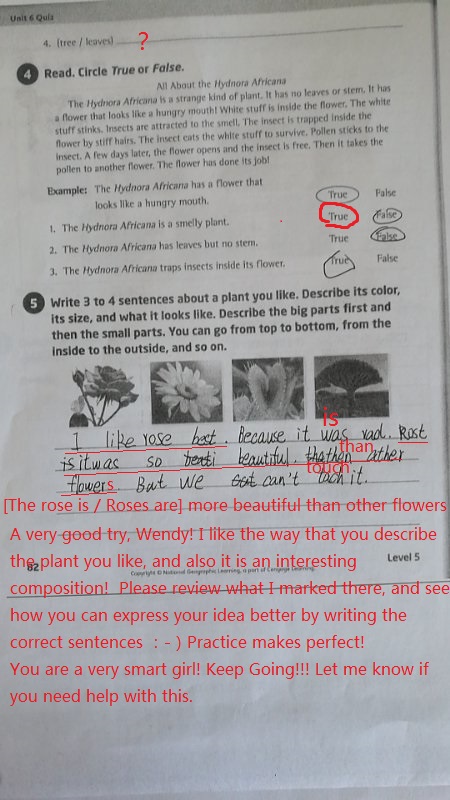 Unit 6 Quiz
4. (tree / leaves) ?
4 Read. Circle True or False.
All About the Hydnora Africana
The Hydnora Africana is a strange kind of plant. It has no leaves or stem. It has
a flower that looks like a hungry mouth! White stuff is inside the flower. The white
stuff stinks. Insects are attracted to the smell. The insect is trapped inside the
flower by stiff hairs. The insect eats the white stuff to survive. Pollen sticks to the
insect. A few days later, the flower opens and the insect is free. Then it takes the
pollen to another flower. The flower has done its job!
Example: The Hydnora Africana has a flower that
looks like a hungry mouth. True False
1. The Hydnora Africana is a smelly plant. True False
2. The Hydnora Africana has leaves but no stem. True False
3. The Hydnora Africana traps insects inside its flower. True False
5 Write 3 to 4 sentences about a plant you like. Describe its color,
its size, and what it looks like. Describe the big parts first and
then the small parts. You can go from top to bottom, from the
inside to the outside, and so on.
is
I like rose best. Because it was rad. Rost
than
is it was so beautiful then ather
touch
flowers. But we can't tach it.
[The rose is / Roses are] more beautiful than other flowers
A very good try, Wendy! I like the way that you describe
the plant you like, and also it is an interesting
82 Level 5
Copyright © National Geographic Learning, a part of Cengage Learning
composition! Please review what I marked there, and see
how you can express your idea better by writing the
correct sentences : - ) Practice makes perfect!
You are a very smart girl! Keep Going!!! Let me know if
you need help with this.